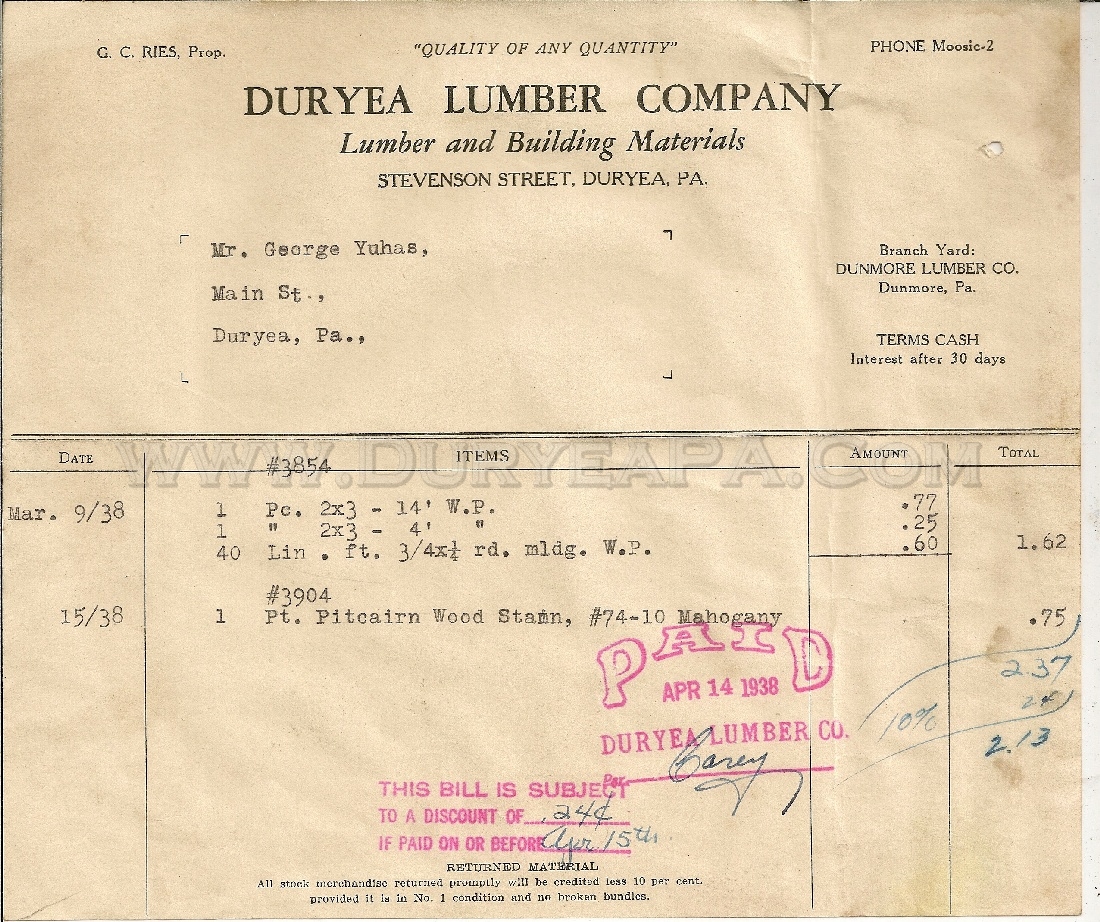 G. C. RIES, Prop.
"QUALITY OF ANY QUANTITY"
PHONE Moosic-2
DURYEA LUMBER COMPANY
Lumber and Building Materials
STEVENSON STREET, DURYEA, PA.
Mr. George Yuhas,
Main St.,
Duryea, Pa.,
Branch Yard:
DUNMORE LUMBER CO.
Dunmore, Pa.
TERMS CASH
Interest after 30 days
WWW.DURYEAPA.COM
DATE ITEMS AMOUNT TOTAL
#3854
Mar. 9/38 1 Pc. 2x3 - 14' W.P. .77
1 " 2x3 - 4' " .25
40 Lin . ft. 3/4x¼ rd. mldg. W.P. .60 1.62
#3904
15/38 1 Pt. Pitcairn Wood Stain, #74-10 Mahogany .75
2.37
10% 24
2.13
PAID
APR 14 1938
DURYEA LUMBER CO.
Per Carey
THIS BILL IS SUBJECT
TO A DISCOUNT OF .24¢
IF PAID ON OR BEFORE Apr 15th.
RETURNED MATERIAL
All stock merchandise returned promptly will be credited less 10 per cent.
provided it is in No. 1 condition and no broken bundles.